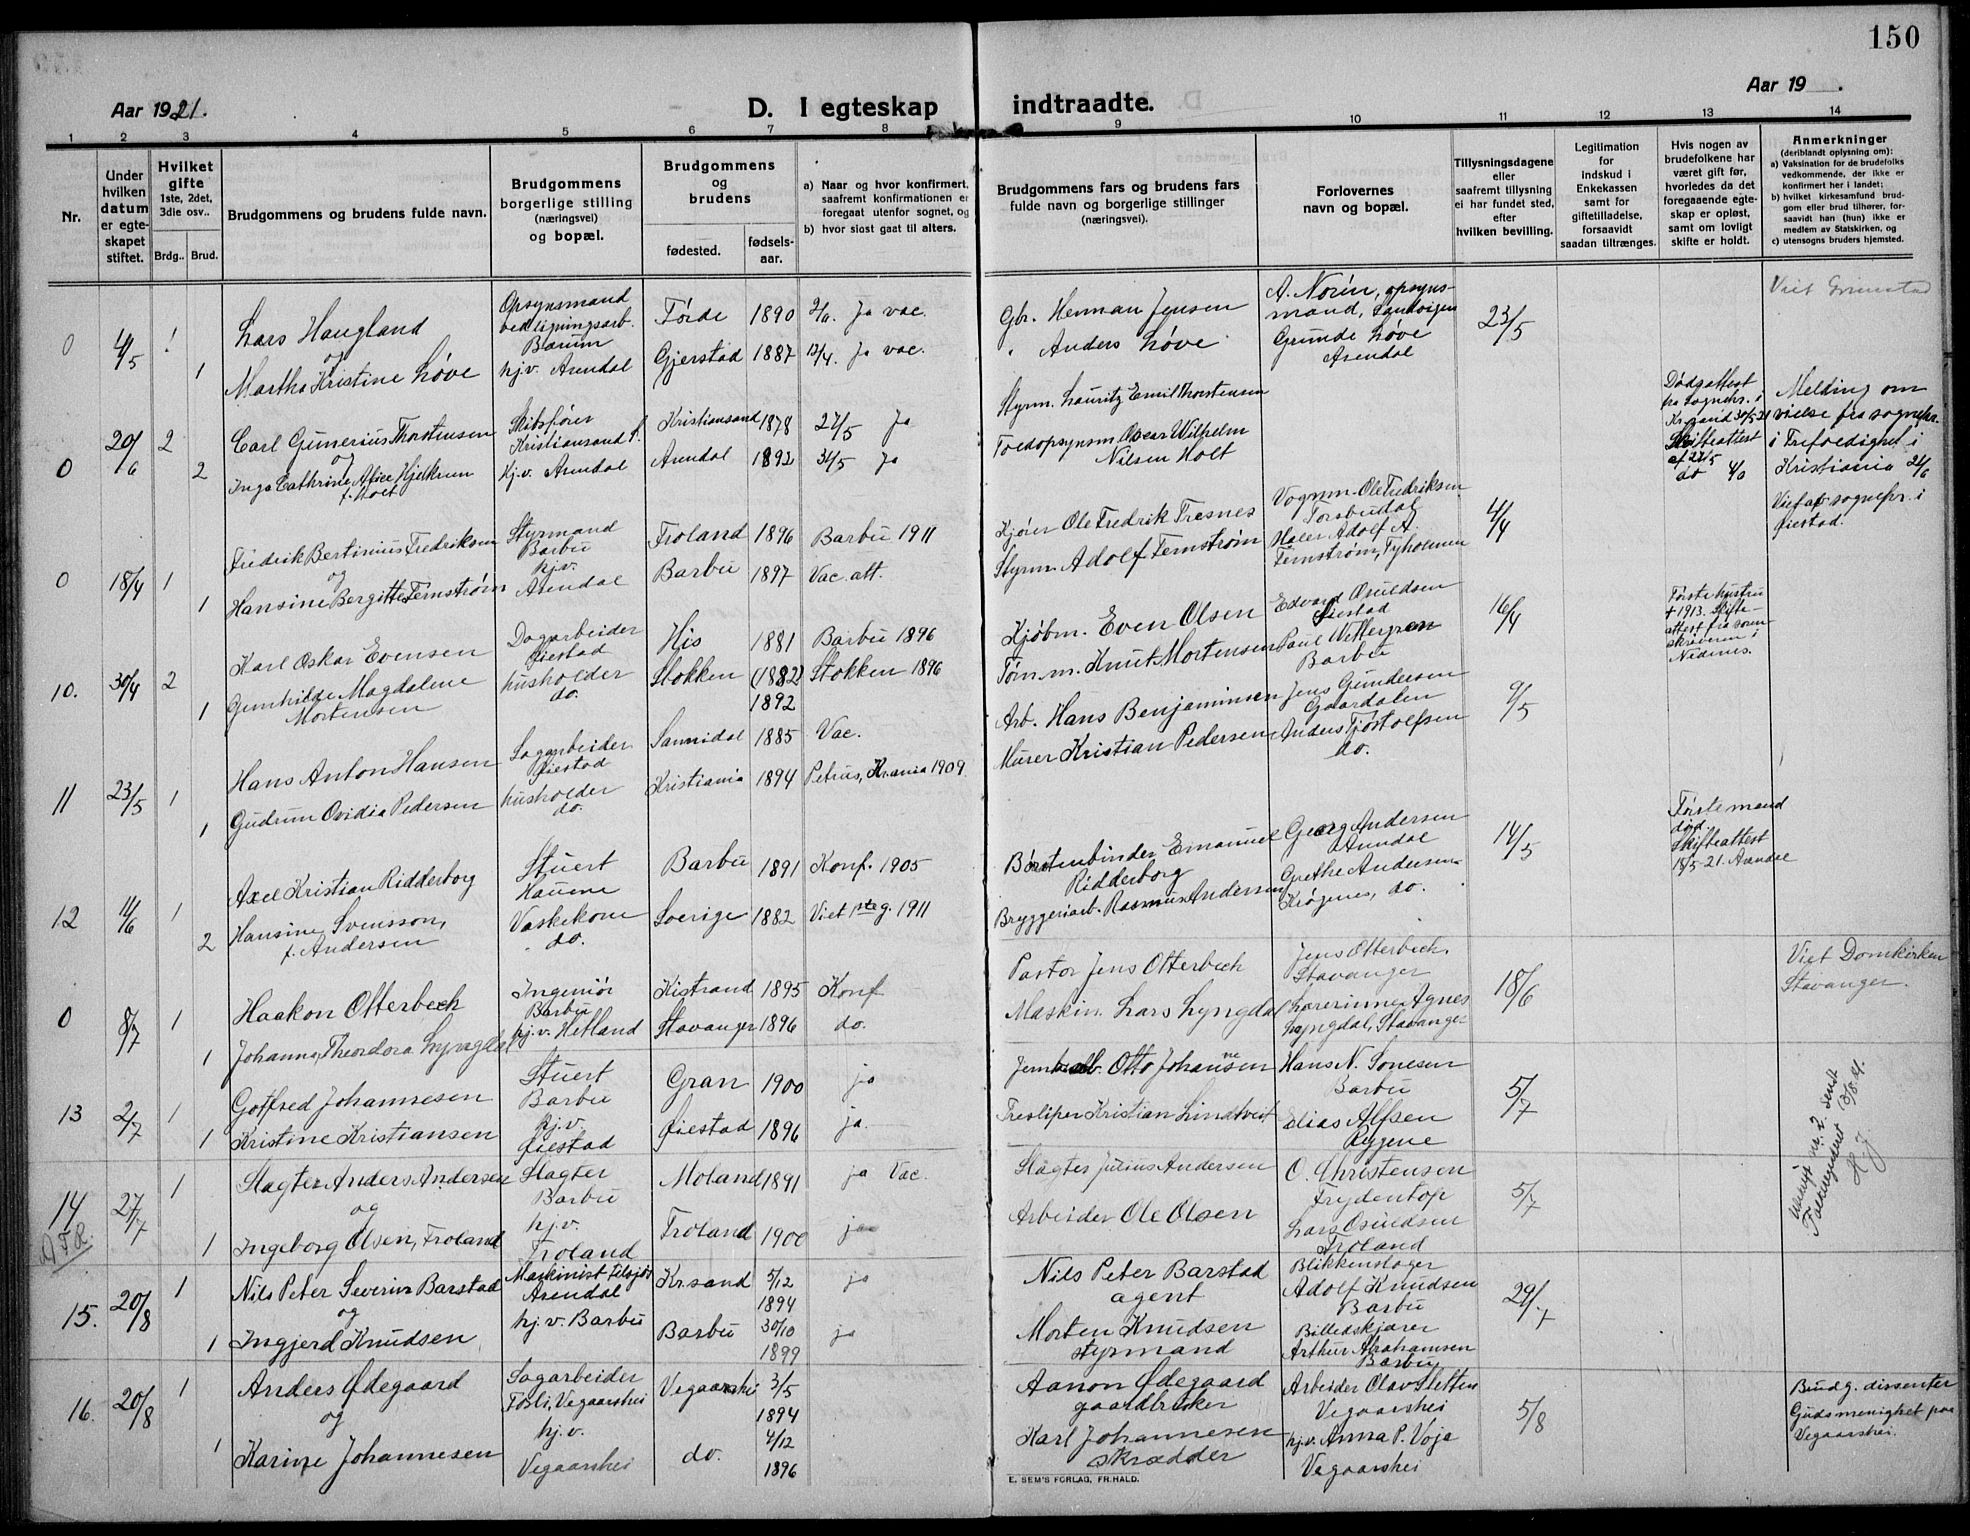 150
Aar 1921.
D. I egteskap indtraadte.
Aar 19 .
1 2 3 4 5 6 7 8 9 10 11 12 13 14
Nr.
Under hvilken datum er egteskapet stiftet.
Hvilket gifte 1ste, 2det, 3die osv..
Brdg.. Brud.
Brudgommens og brudens fulde navn.
Brudgommens borgerlige stilling (næringsvei) og bopæl.
Brudgommens og brudens
fødested.
fødselsaar.
a) Naar og hvor konfirmert, saafremt konfirmationen er foregaat utenfor sognet, og
b) hvor sidst gaat til alters.
Brudgommens fars og brudens fars fulde navn og borgerlige stillinger (næringsvei).
Forlovernes navn og bopæl.
Tillysningsdagene eller saafremt tillysning ei har fundet sted, efter hvilken bevilling.
Legitimation for indskud i Enkekassen samt for giftetilladelse, forsaavidt saadan tiltrænges.
Hvis nogen av brudefolkene har været gift før, hvorledes da det foregaaende egteskap er opløst, samt om lovligt skifte er holdt.
Anmerkninger
(deriblandt oplysning om):
a) Vaksination for de brudefolks vedkommende, der ikke er konfirmert her i landet;
b) hvilket kirkesamfund brudgom eller brud tilhører, forsaavidt han (hun) ikke er medlem av Statskirken, og
c) utensogns bruders hjemsted.
0 4/5 1 Lars Haugland Opsynsmand Førde 1890 Ja vac. Gbr. Herman Jensen A. Norin, opsynsmand, Sandvigen 23/5 Viet Grimstad
og Bærum
1 Martha Kristine Løve hj.v. Arendal Gjerstad 1887 12/4. Ja vac. " Anders Løve Grunde Løve Arendal
0 20/6 2 Carl Gunerius Thorstensen Skibsfører Kristiansand S. Kristiansand 1878 27/5 Ja Styrm. Lauritz Emil Thorstensen
og
2 Inga Cathrine Alice Hjelkrem f. Holt Hj.v. Arendal Arendal 1892 31/5 Ja Toldopsynsm. Oscar Wilhelm Nilsen Holt
Dødsattest fra Sognepr. i Kr.sand 30/5 21 Skifteattest af 27/5 do 4/6
Melding om vielse fra sognepr. i Trefoldighet i Kristiania 24/6
0 18/4 1 Fredrik Bertinius Fredriksen Styrmand Barbu Froland 1896 Barbu 1911 Kjører Ole Fredrik Tresnes Vognm. Ole Fredriksen Torsbudal 4/4 Viet af sognepr. i Øiestad.
og hj.v.
1 Hansine Bergitte Ternstrøm Arendal Barbu 1897 Vac. att. Styrm. Adolf Ternstrøm Maler Adolf A. Ternstrøm, Tyholmen
10. 30/4 2 Karl Oskar Evensen Dagarbeider Øiestad His 1881 Barbu 1896 Kjøbm. Even Olsen Edvard Osuldsen Øiestad 16/4 Første hustru + 1913. Skifteattest fra sorenskriveren i Nedenes.
1 Gunhilde Magdalene Mortensen husholder do. Stokken (1882) 1892 Stokken 1896 Tømm. Knut Mortensen Paul Wettergren Barbu
11 23/5 1 Hans Anton Hansen Sagarbeider Øiestad Sannidal 1885 Vac. Arb. Hans Benjaminsen Jens Gundersen Gaardalen 9/5
1 Gudrun Ovidia Pedersen husholder do. Kristiania 1894 Petrus, Kr.ania 1909 Murer Kristian Pedersen Anders Tjostolfsen do.
12 11/6 1 Axel Kristian Ridderborg Stuert Barbu 1891 Konf. 1905 Børstenbinder Emanuel Ridderborg Georg Andersen Arendal 14/5 Første mand død Skifteattest 18/5-21. Arendal
2 Hansine Svensson, f. Andersen Vaskekone do. Sverige 1882 Viet 1ste g. 1911 Bryggeriarb. Rasmus Andersen Grethe Andersen Krøgenes, do.
0 8/7 1 Haakon Otterbech Ingeniør Barbu Kistrand 1895 Konf Pastor Jens Otterbech Jens Otterbech, Stavanger 18/6 Viet Domkirken Stavanger.
1 Johanne Theodora Lyngdal hj.v. Hetland Stavanger 1896 do. Maskin. Lars Lyngdal Lærerinne Agnes Lyngdal, Stavanger
13 2/7 1 Gotfred Johannesen Stuert Barbu Gran 1900 ja Otto Johansen Hans N. Sonesen Barbu 5/7
1 Kristine Kristiansen hj.v. Øiestad Øiestad 1896 ja. Tresliper Kristian Lindtveit Elias Alfsen Rygene
14 27/7 1 Slagter Anders Andersen Slagter Barbu Moland 1891 ja Vac. Slagter Julius Andersen O. Christensen Frydentop 5/7
og
1 Ingeborg Olsen, Froland hj.v. Froland Froland 1900 ja Arbeider Ole Olsen Lars Osuldsen Froland
15. 20/8 1 Nils Peter Severin Barstad Maskinist tilsjøs Arendal Kr.sand 5/12 1894 ja Nils Peter Barstad agent Blikkenslager Adolf Knudsen Barbu 29/7
og
1 Ingjerd Knudsen hj.v. Barbu Barbu 30/10 1899 ja Morten Knudsen styrmand Billedskjærer Arthur Abrahamsen Barbu
16. 20/8 1 Anders Ødegaard Sagarbeider Fosli, Vegaarshei Vegaarshei 3/5 1894 Aanon Ødegaard gaardbruker Arbeider Olav Sletten Vegaarshei 5/8 Brudg. dissenter Gudsmenighet paa Vegaarshei.
og
1 Karine Johannesen hj.v. Vegaarshei do. 4/12 1896 Karl Johannesen skrædder hj.v. Anna P. Voje Vegaarshei
E. SEM'S FORLAG, FR.HALD.